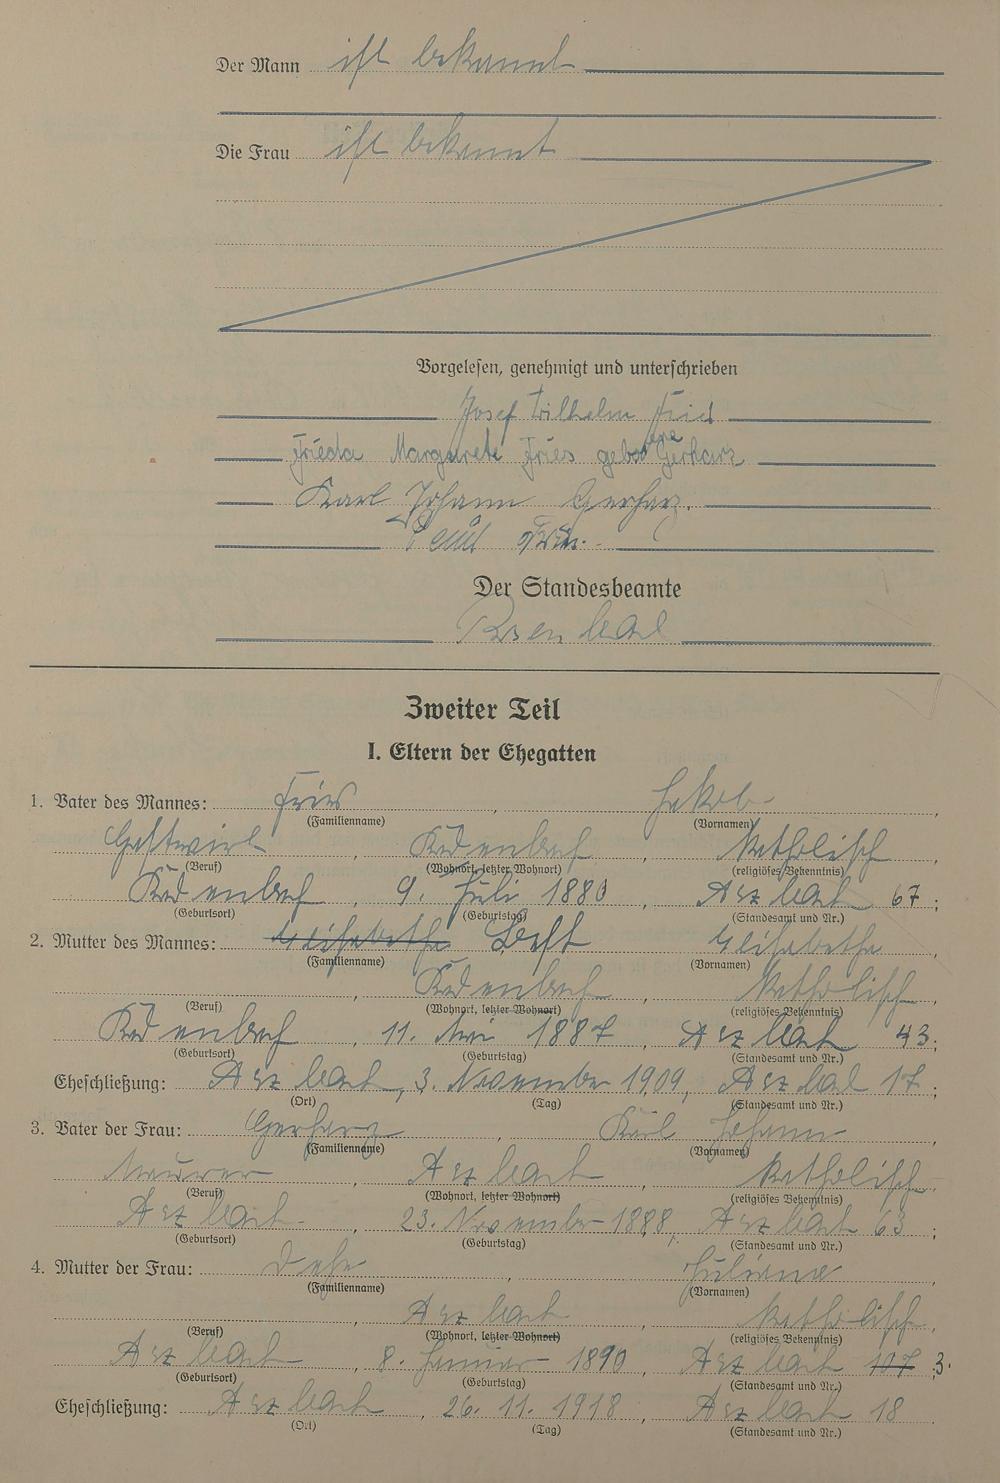 Der Mann ist bekannt
Die Frau ist bekannt
Vorgelesen, genehmigt und unterschrieben
Josef Wilhelm Fries
Frieda Margarete Fries geborene Gerharz
Karl Johann Gerharz.
Paul Fries.
Der Standesbeamte
Zweiter Teil
I. Eltern der Ehegatten
1. Vater des Mannes: Fries, Jakob,
(Familienname) (Vornamen)
Gastwirt, Kadenbach, katholisch
(Beruf) (Wohnort, letzter Wohnort) (religiöses Bekenntnis)
Kadenbach, 9. Juli 1880, Arzbach 67;
(Geburtsort) (Geburtstag) (Standesamt und Nr.)
2. Mutter des Mannes: Elisabetha, Elisabetha,
(Familienname) (Vornamen)
, Kadenbach, katholisch,
(Beruf) (Wohnort, letzter Wohnort) (religiöses Bekenntnis)
Kadenbach, 11. Mai 1887, Arzbach 43;
(Geburtsort) (Geburtstag) (Standesamt und Nr.)
Eheschließung: Arzbach, 3. November 1909, Arzbach 17;
(Ort) (Tag) (Standesamt und Nr.)
3. Vater der Frau: Gerharz, Karl Johann,
(Familienname) (Vornamen)
Maurer, Arzbach, katholisch,
(Beruf) (Wohnort, letzter Wohnort) (religiöses Bekenntnis)
Arzbach, 23. November 1888, Arzbach 63;
(Geburtsort) (Geburtstag) (Standesamt und Nr.)
4. Mutter der Frau: , Juliana,
(Familienname) (Vornamen)
, Arzbach, katholisch,
(Beruf) (Wohnort, letzter Wohnort) (religiöses Bekenntnis)
Arzbach, 8. Januar 1890, Arzbach 107 3.
(Geburtsort) (Geburtstag) (Standesamt und Nr.)
Eheschließung: Arzbach, 26. 11. 1918, Arzbach 18
(Ort) (Tag) (Standesamt und Nr.)